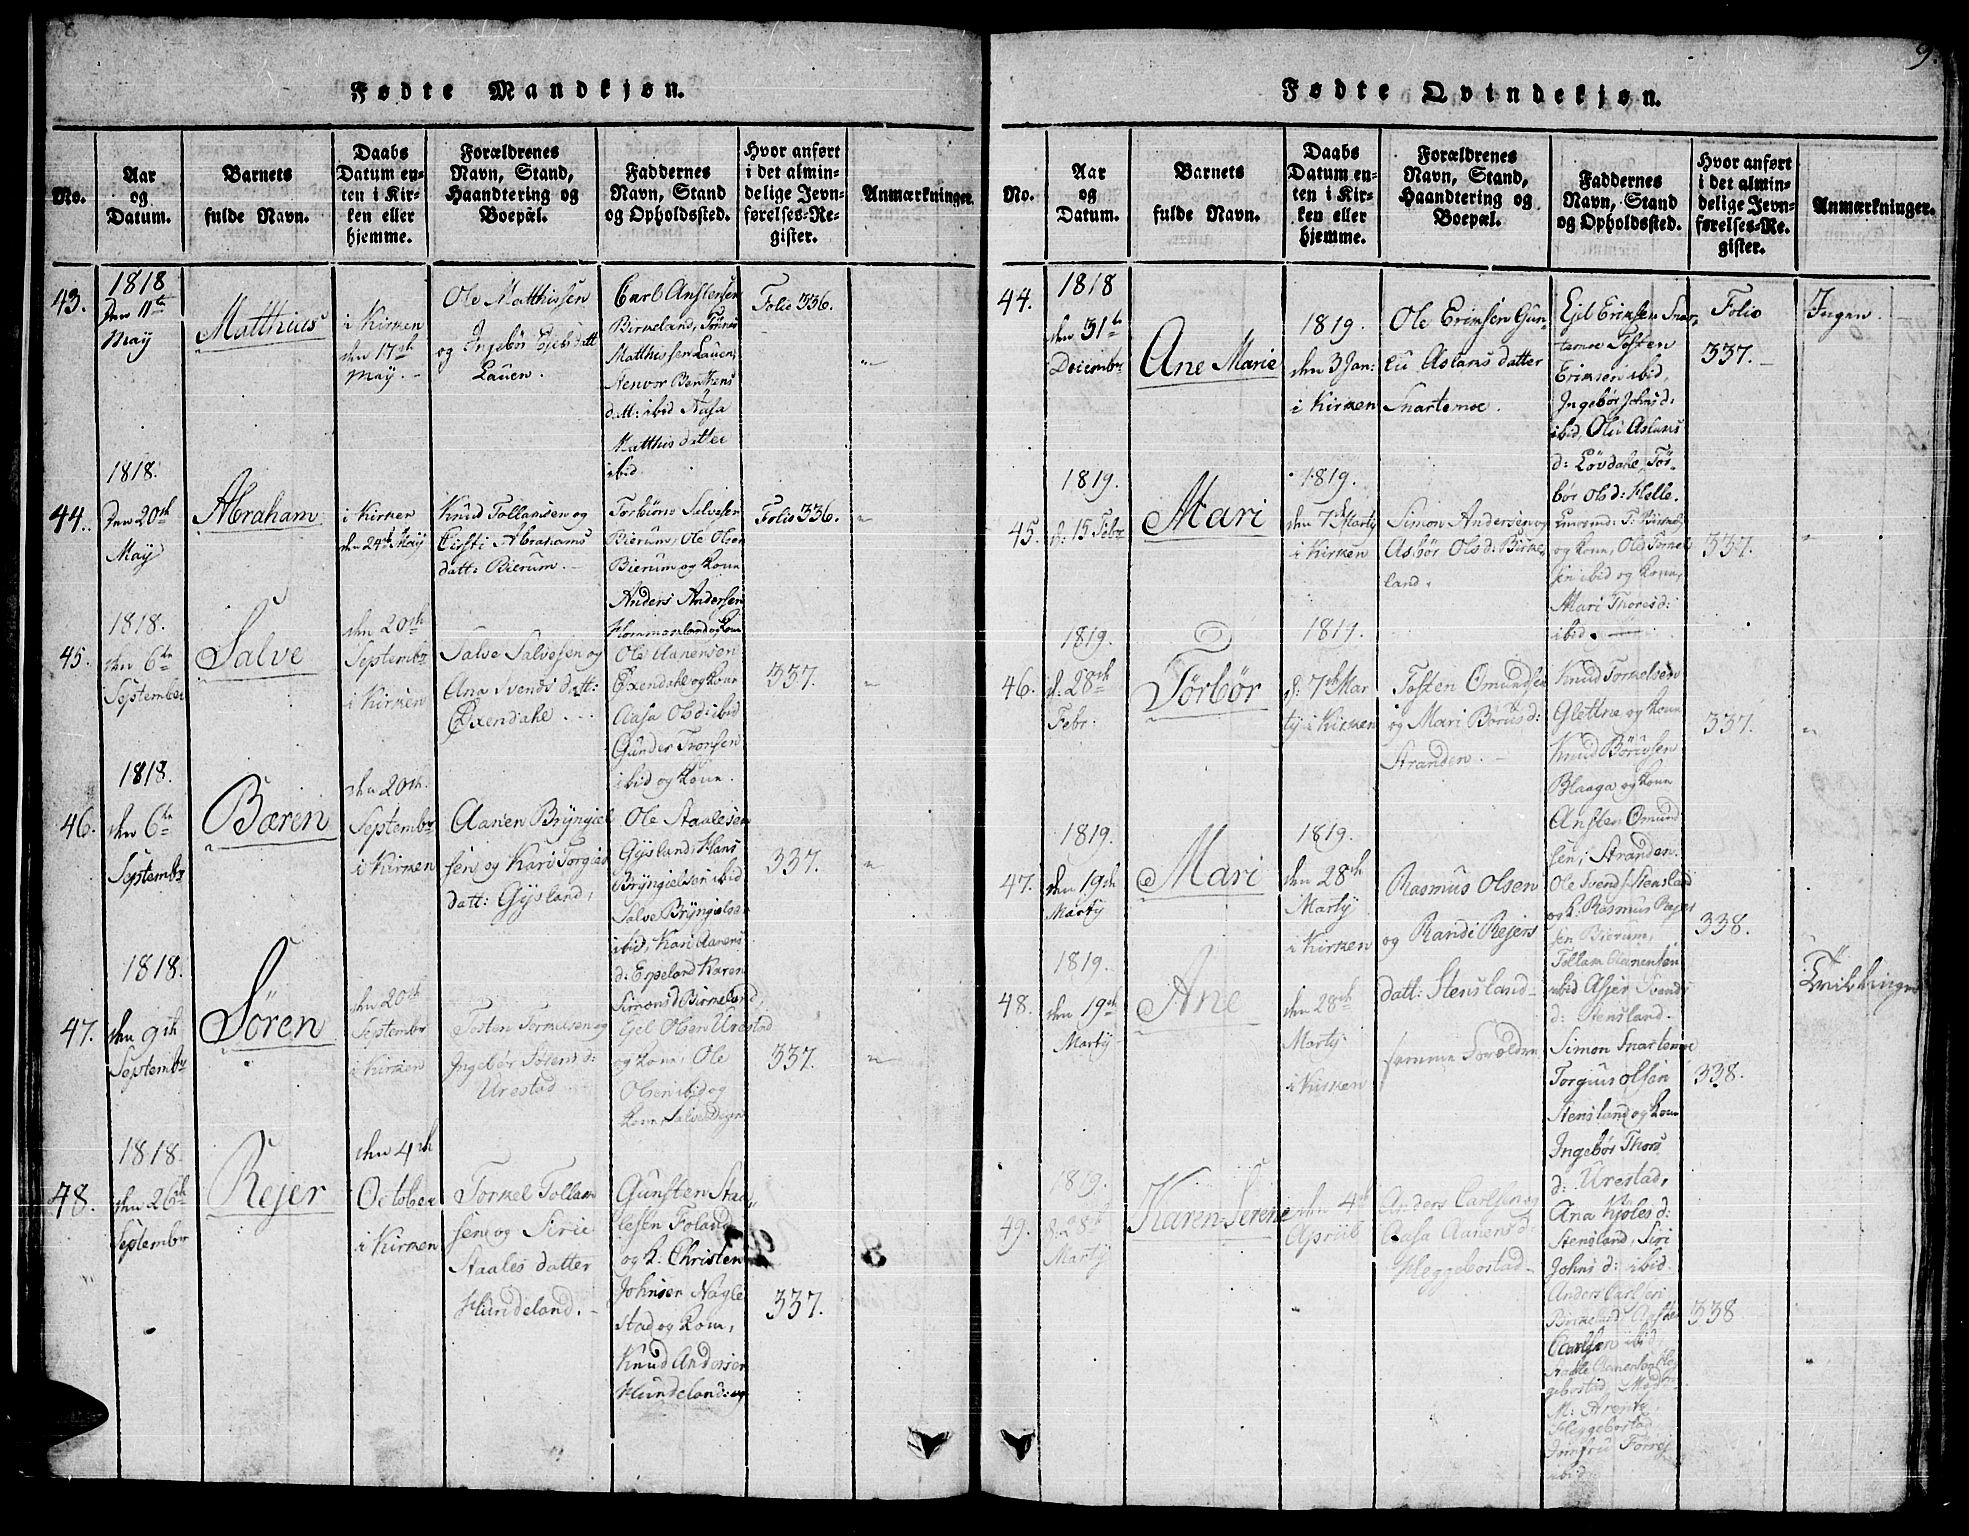 Fødte Mandkjøn.
No.
Aar
og
Datum.
Barnets
fulde Navn.
Daabs
Datum en-
ten i Kir-
ken eller
hjemme.
Forældrenes
Navn, Stand,
Haandtering og
Boepæl.
Faddernes
Navn, Stand
og Opholdssted.
Hvor anført
i det almin-
delige Jevn-
førelses-Re-
gister.
Anmærkninger.
43.
1818
Den 11te
May
Matthius
i Kirken
den 17de
May.
Ole Matthissen
og Ingebør
Lauen.
Carl Anstensen
Birkeland,
Matthissen Lauen,
datt: ibid Aasa
Matthis datter
ibid.
Folio 336.
44.
1818.
Den 20de
May
Abraham
i Kirken
den 24de May
Knud Tollamsen og
Cirsti Abrahams
datt: Bierum.
Torbiörn Salvesen
Bierum, Ole Olsen
Bierum og kone
Anders Andersen
Folio 336.
45.
1818.
den 6te
September
Salve
den 20de
September
i Kirken
Salve Salvesen og
Ana Svends datt:
Øxendahl.
Ole Aanensen
Øxendahl og kone
Aasa Olsd: ibid
Gunder Tronsen
ibid og kone.
337.
46.
1818.
den 6te
September
Bæren
den 20de
September
i Kirken
Aanen Bryngiel
sen og Kari Torgius
datt: Gysland,
Ole Staalesen
Gysland, Hans
Bryngielsen ibid
Salve Bryngiels.
ibid, Kari Aanens
d: Erseland Karen
Simons d Birkeland
337.
47.
1818.
den 9de
September
Sören
den 20de
September
i Kirken
Tosten Tormusen og
Ingebør Sörens d:
Urestad
Gjel Olsen Urestad
og kone, Ole
Olsen ibid og
kone,
337.
48.
1818.
den 26de
September
Rejer
den 4de
October
i Kirken
Torkel Tollam
sen og Sirie
Staales datter
Hundeland.
Gunsten Staa
lesen Foland
og k. Christen
Johnsen Nagle
stad og kone,
Knud Andersen
Hundeland: og
337.
9.
Fødte Qvindekjøn.
No.
Aar
og
Datum.
Barnets
fulde Navn.
Daabs
Datum en-
ten i Kir-
ken eller
hjemme.
Forældrenes
Navn, Stand,
Haandtering og
Boepæl.
Faddernes
Navn, Stand
og Opholdssted.
Hvor anført
i det almin-
delige Jevn-
førelses-Re-
gister.
Anmærkninger.
44.
1818
den 31te
December
Ane Marie
1819.
den 3 Jan:
i Kirken
Ole Erixsen Gun-
Aslaks datter
Snartemoe.
Ejel Erixsen Snar-
temoe Tosten
Erixsen ibid,
Ingebør Johns d:
ibid, Oli Aslaks
d: Løvdahl, Tør-
bør Ols d: Helle.
Folio
337.
Ingen.
45.
1819.
d: 15 Febr
Mari
1819.
den 7de Marty
i Kirken
Simon Andersen og
Asbør Olsd: Birke-
land.
og kone, Ole Torkel
sen ibid og kone,
Mari Thores d:
ibid.
337.
46.
1819.
d: 28de
Febr.
Törbör
1819.
d: 7de Mar
ty i Kirken
Tosten Omundsen
og Mari Börius d:
Stranden.
Knud Torkelsen
Glettne og kone
Knud Böriusen
Blaaga og kone
Ansten Omund
sen, Stranden.
337.
47.
1819.
den 19de
Marty
Mari
1819.
den 28de
Marty
i Kirken
Rasmus Olsen
og Randi Rejers
datt: Stensland
Ole Svends: Stensland
og k. Rasmus Rejer
sen Bierum,
Tollam Aanensen
ibid Asjer Svends
d: Stensland.
338.
Tvillinger
48.
1819.
den 19de
Marty
Ane
den 28de
Marty
i Kirken
samme Forældre
Simon Snartemoe
Torgius Olsen
Stensland og kone
Ingebør Thors
d: Urestad,
Ana Kjøls d:
Stensland, Siri
Johns d: ibid.
338.
49.
1819.
d: 28de
Marty
Karen Serene
den 4de
Aprill
Anders Carlsen og
Aasa Aanens d
Heggebostad
Anders Carlsen
Birkeland, Ansten
Carlsen ibid,
gebostad,
M: Arentz
Heggebostad
Jomfru
ibid
338